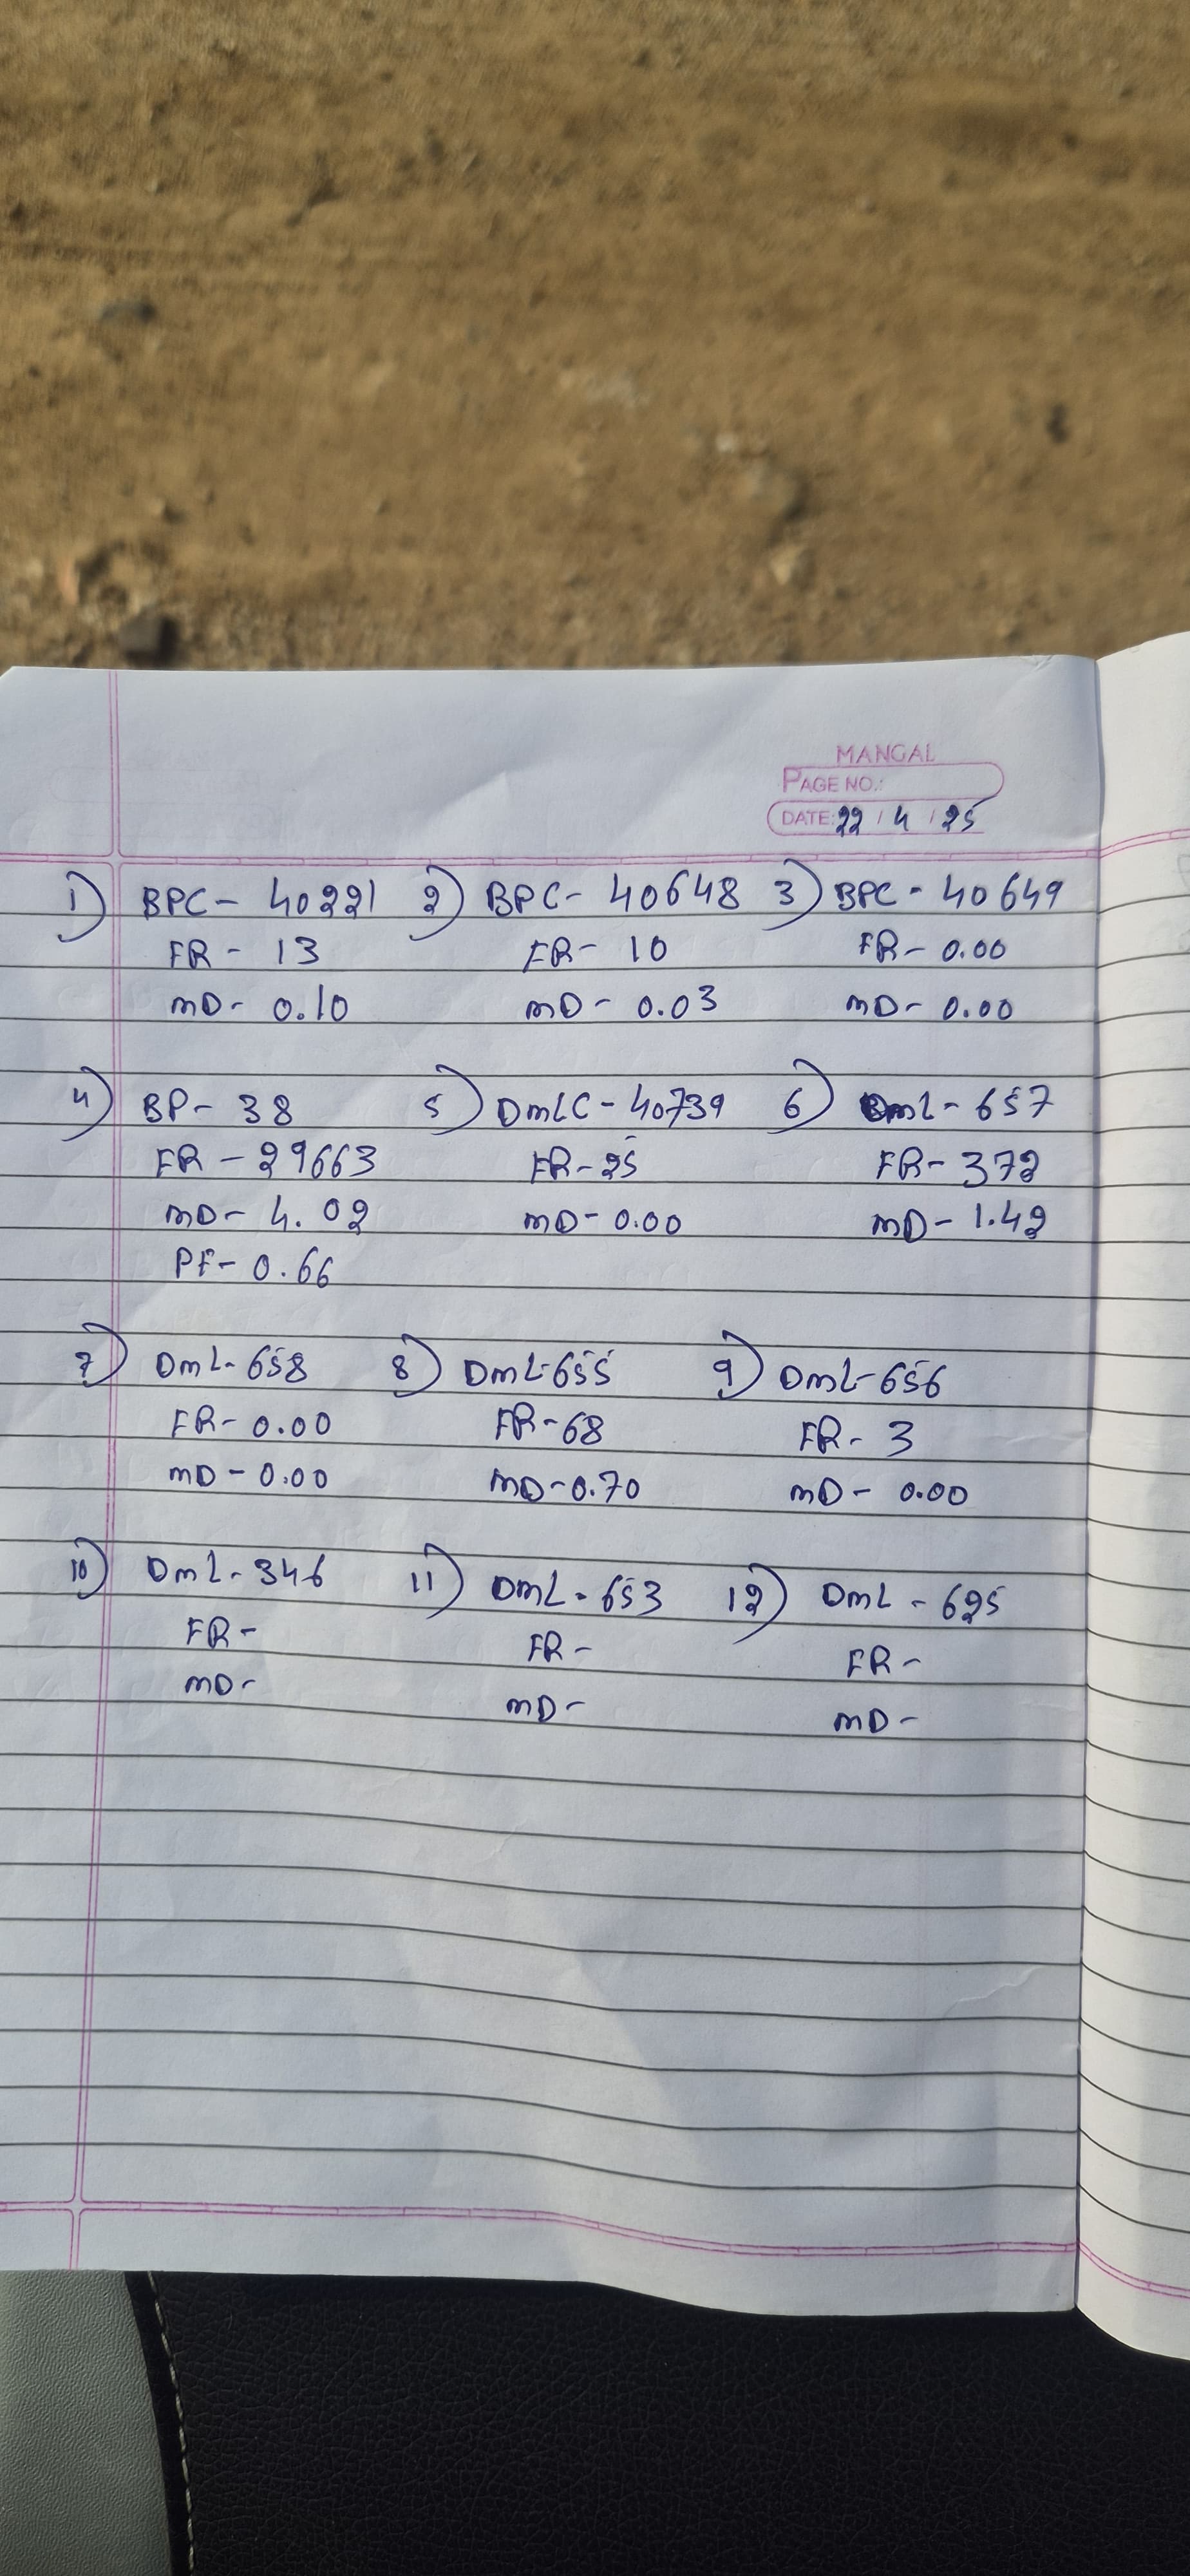 MANGAL
PAGE NO.:
DATE: 22 / 4 / 25
1) BPC - 40221 2) BPC - 40648 3) BPC - 40649
FR - 13 FR - 10 FR - 0.00
MD - 0.10 MD - 0.03 MD - 0.00
4) BP - 38 5) DMLC - 40739 6) DML - 657
FR - 29663 FR - 25 FR - 372
MD - 4.02 MD - 0.00 MD - 1.42
PF - 0.66
7) DML - 658 8) DML - 655 9) DML - 656
FR - 0.00 FR - 68 FR - 3
MD - 0.00 MD - 0.70 MD - 0.00
10) DML - 346 11) DML - 653 12) DML - 625
FR - FR - FR -
MD - MD - MD -